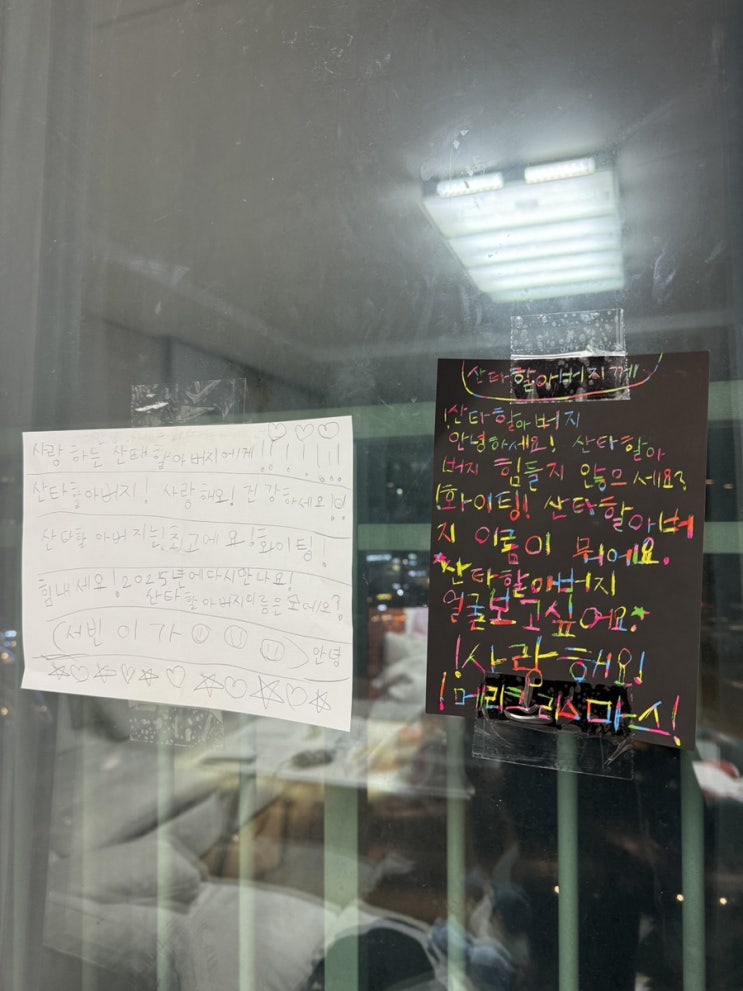 사랑 하는 산태 할아버지에게!!!!!
산타할아버지! 사랑해요! 건강하세요!
산타할 아버지는!최고에요!화이팅!
힘내세요!2025년에다시만나요!
산타할아버지이름은모에요?
(서빈이가
안녕
산타할아버지께
!산타할아버지
안녕하세요! 산타할아
버지 힘들지 않으세요?
!화이팅! 산타할아버
지 이름이 뭐에요.
산타할아버지
얼굴보고싶어요.
!사랑해요!
!메리크리스마스!